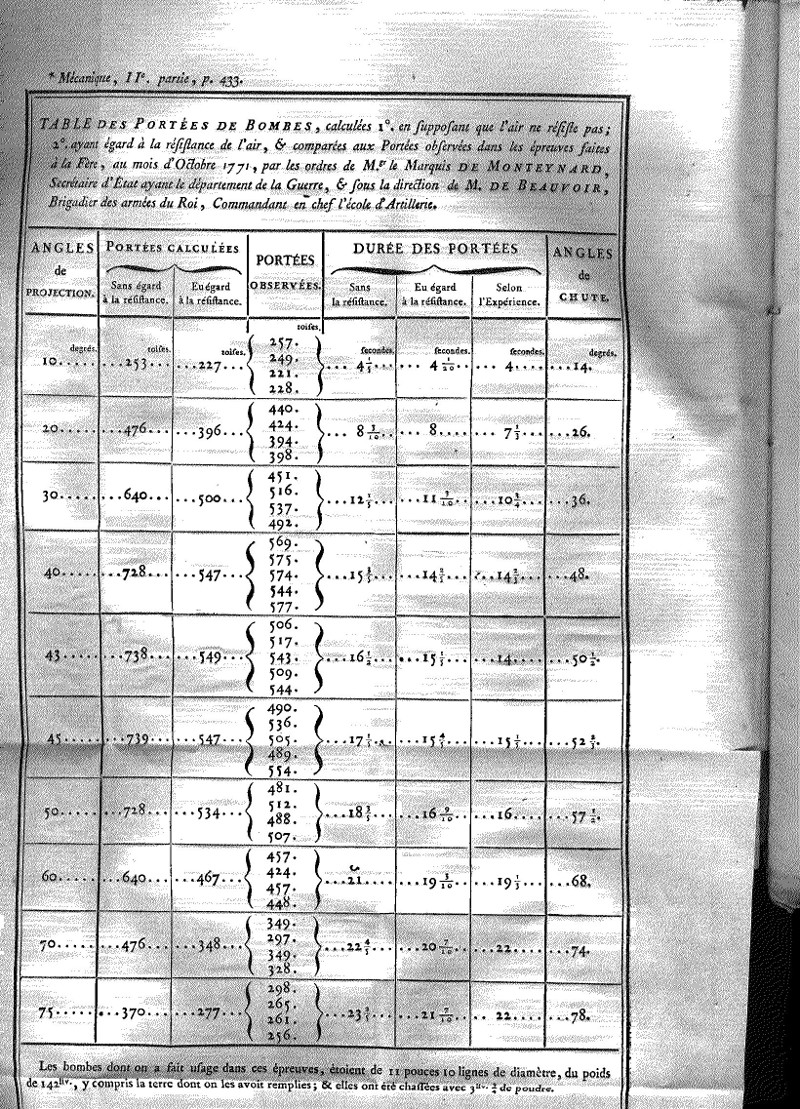 * Mécanique, IIe. partie, p. 433.
TABLE DES PORTÉES DE BOMBES, calculées 1°. en supposant que l'air ne résiste pas;
2°. ayant égard à la résistance de l'air, & comparées aux Portées observées dans les épreuves faites
à la Fère, au mois d'Octobre 1771, par les ordres de M.gr le Marquis DE MONTEYNARD,
Secrétaire d'État ayant le département de la Guerre, & sous la direction de M. DE BEAUVOIR,
Brigadier des armées du Roi, Commandant en chef l'école d'Artillerie.
ANGLES de PROJECTION. | PORTÉES CALCULÉES | PORTÉES OBSERVÉES. | DURÉE DES PORTÉES | ANGLES de CHUTE.
Sans égard à la résistance. | Eu égard à la résistance. | Sans la résistance. | Eu égard à la résistance. | Selon l'Expérience.
degrés. | toises. | toises. | toises. | secondes. | secondes. | secondes. | degrés.
10..... | ...253... | ...227... | 257. 249. 221. 228. | ... 4 1/5... | ... 4 1/20... | ... 4.... | ...14.
20..... | ...476... | ...396... | 440. 424. 394. 398. | ... 8 3/10... | ... 8.... | ... 7 1/3... | ...26.
30..... | ...640... | ...500... | 451. 516. 537. 492. | ...12 1/5... | ...11 3/10... | ...10 3/4... | ...36.
40..... | ...728... | ...547... | 569. 575. 574. 544. 577. | ...15 3/5... | ...14 2/3... | ...14 2/3... | ...48.
43..... | ...738... | ...549... | 506. 517. 543. 509. 544. | ...16 1/2... | ...15 1/3... | ...14.... | ...50 1/2.
45..... | ...739... | ...547... | 490. 536. 505. 489. 554. | ...17 1/5... | ...15 4/5... | ...15 1/3... | ...52 2/3.
50..... | ...728... | ...534... | 481. 512. 488. 507. | ...18 3/5... | ...16 9/10... | ...16.... | ...57 1/2.
60..... | ...640... | ...467... | 457. 424. 457. 448. | ...21.... | ...19 3/10... | ...19 1/3... | ...68.
70..... | ...476... | ...348... | 349. 297. 349. 328. | ...22 4/5... | ...20 7/10... | ...22.... | ...74.
75..... | ...370... | ...277... | 298. 265. 261. 256. | ...23 | ...21 7/10... | ... 22.... | ...78.
Les bombes dont on a fait usage dans ces épreuves, étoient de 11 pouces 10 lignes de diamètre, du poids
de 142liv., y compris la terre dont on les avoit remplies; & elles ont été chassées avec 3liv. 3/4 de poudre.